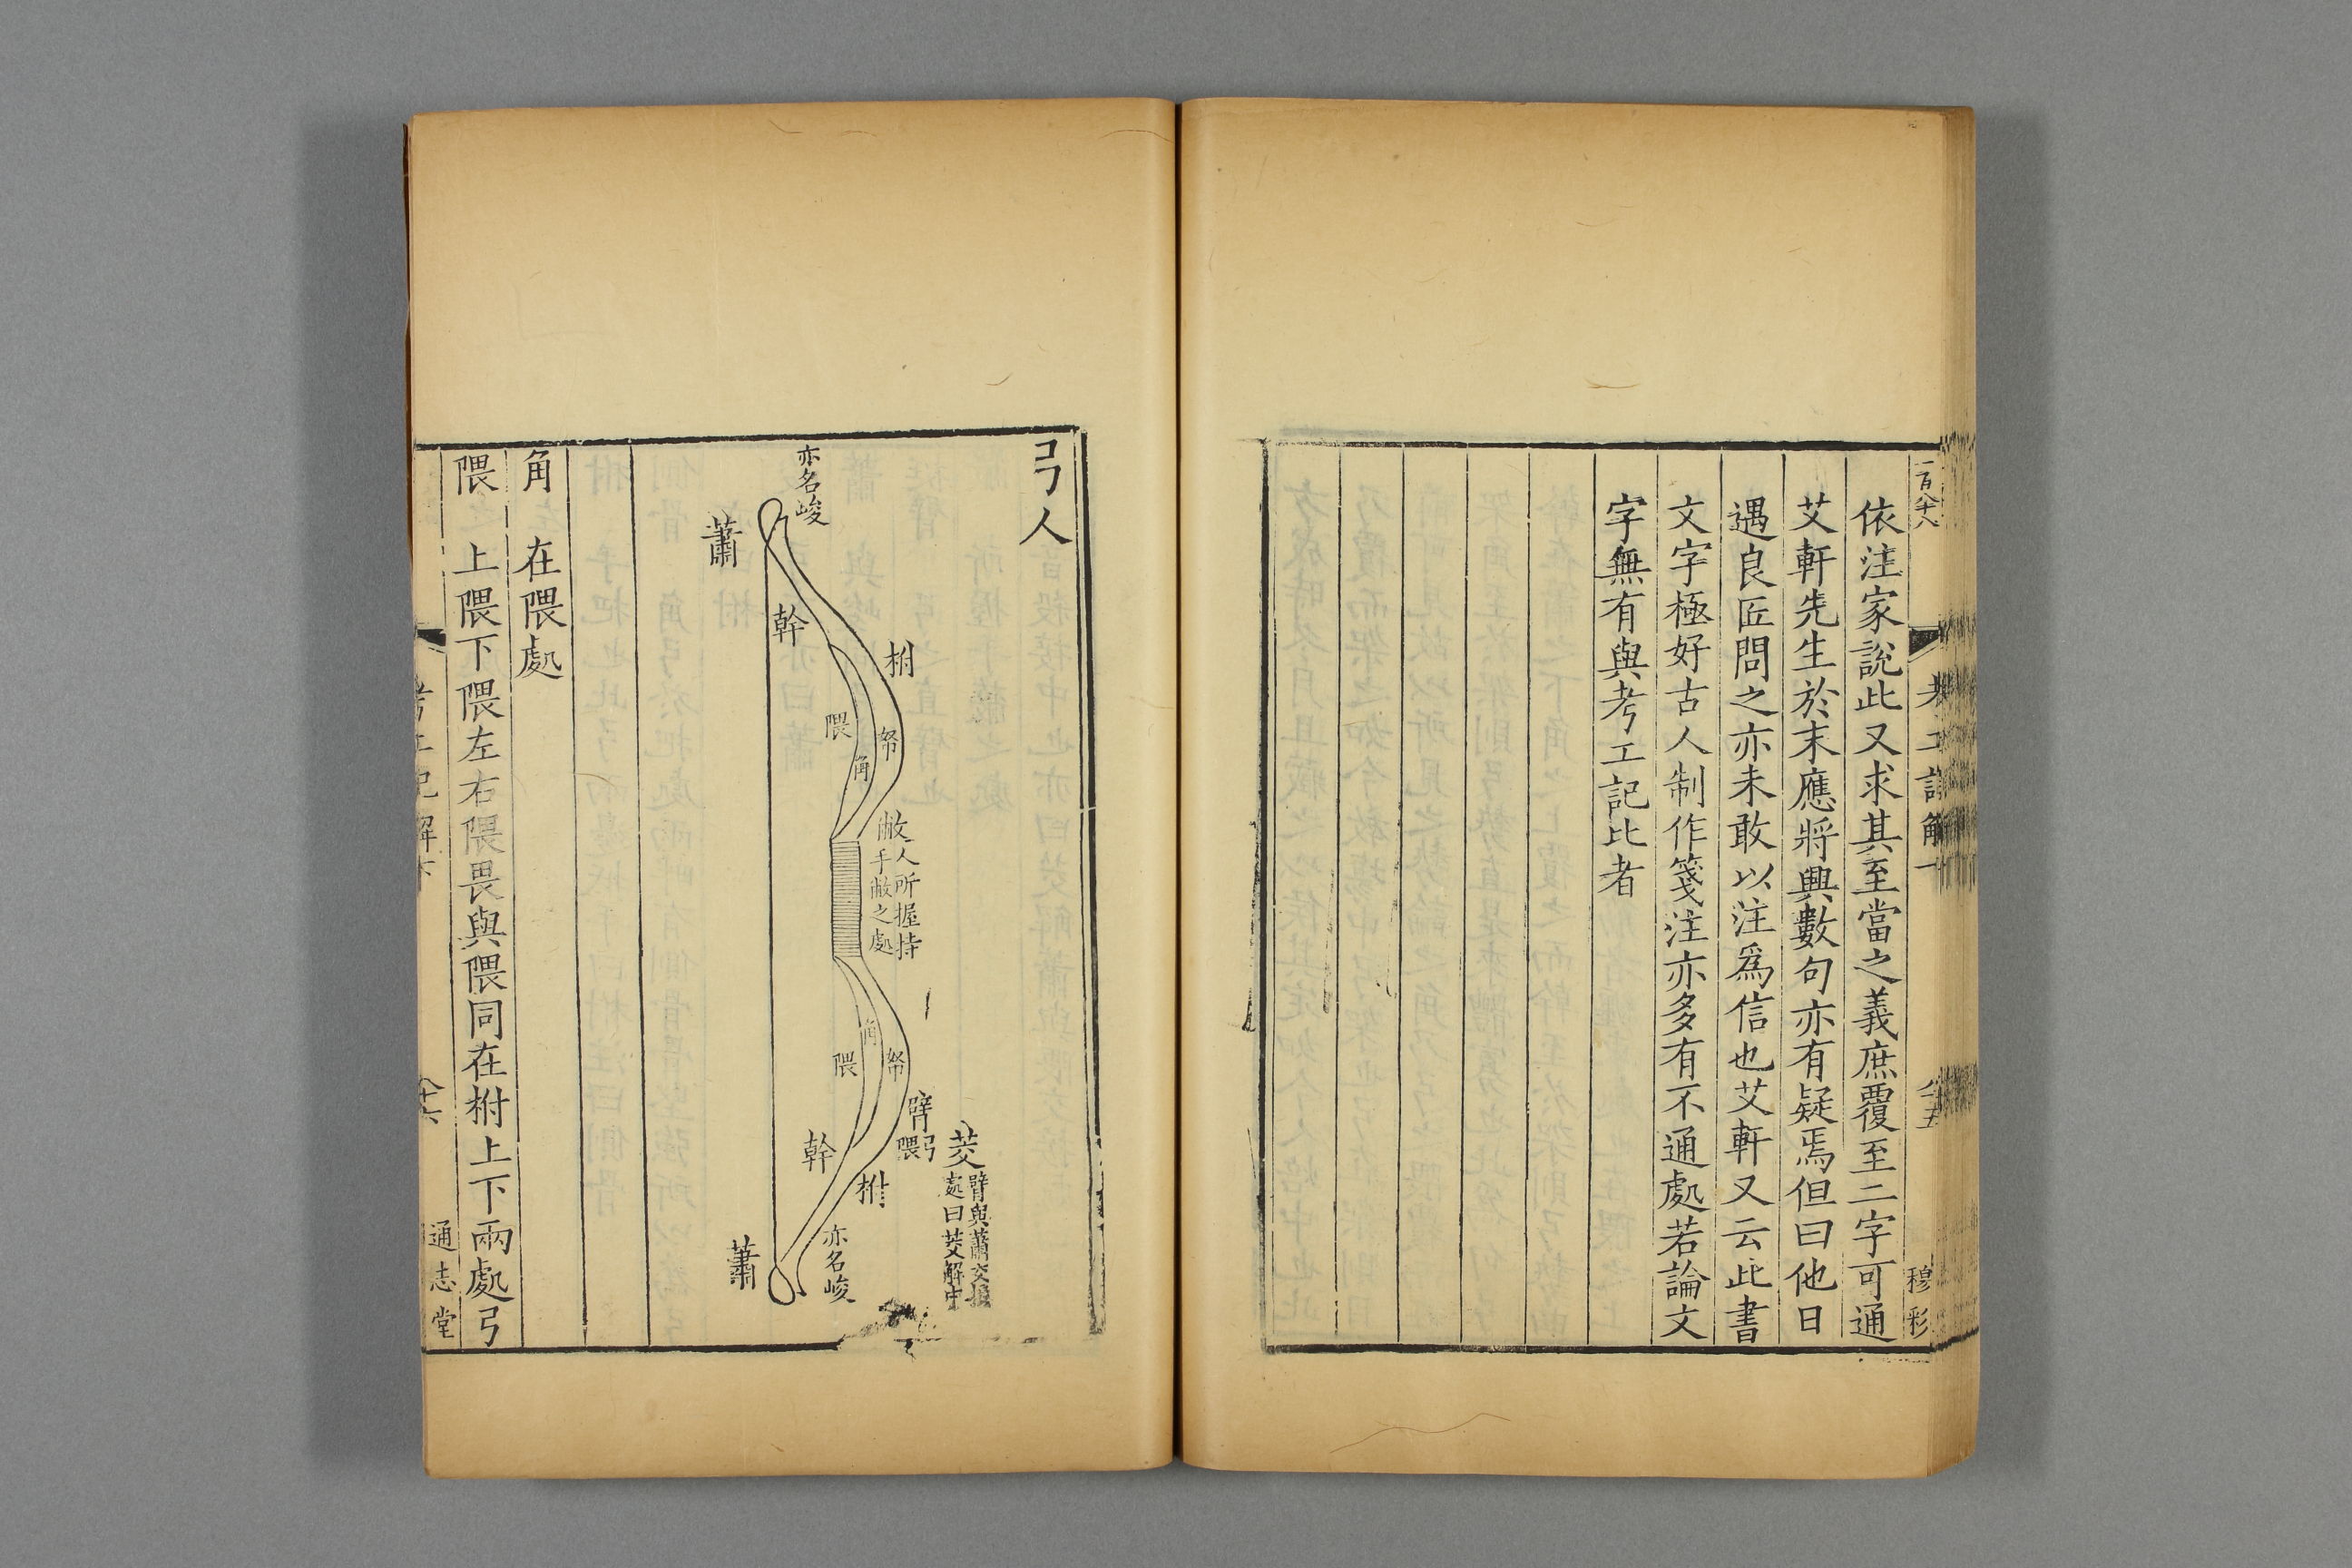 一百六十八
依注家說此又求其至當之義庶覆至二字可通
艾軒先生於末應將興數句亦有疑焉但曰他日
遇良匠問之亦未敢以注爲信也艾軒又云此書
文字極好古人制作箋注亦多有不通處若論文
字無有與考工記比者
穆彩
弓人
亦名峻
蕭
幹
柎
隈
角
帤
敝
人所握持
手敝之處
角
隈
帤
臂
弓
隈
茭
臂與蕭交接
處曰茭解中
幹
柎
亦名峻
蕭
角 在隈處
隈 上隈下隈左右隈畏與隈同在柎上下兩處弓
考工記解下
通志堂